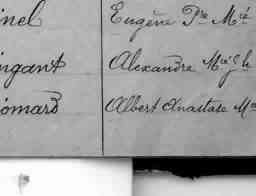 nel Eugène Pre Mié
ngant Alexandre
omard Albert Anastase